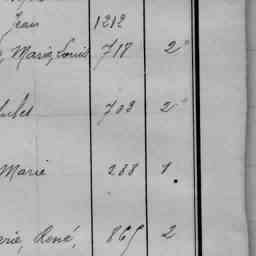 Jean 1212
Marie, Louis 718 2
702 2
Marie 288 1.
René, 865 2